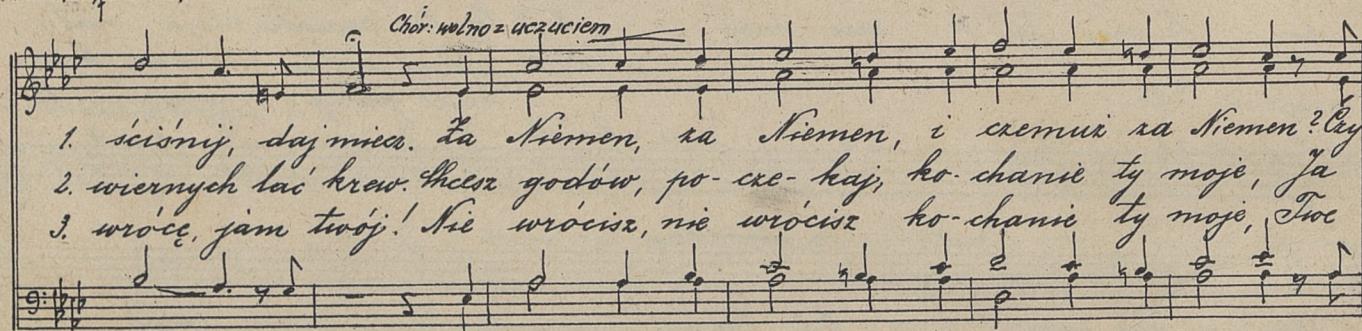 Chór: wolno z uczuciem
1. ściśnij, daj miecz. Za Niemen, za Niemen, i czemuż za Niemen? Czy
2. wiernych lać krew. Chcesz godów, po-cze-kaj, ko-chanie ty moje, Ja
3. wrócę, jam twój! Nie wrócisz, nie wrócisz ko-chanie ty moje, Twe